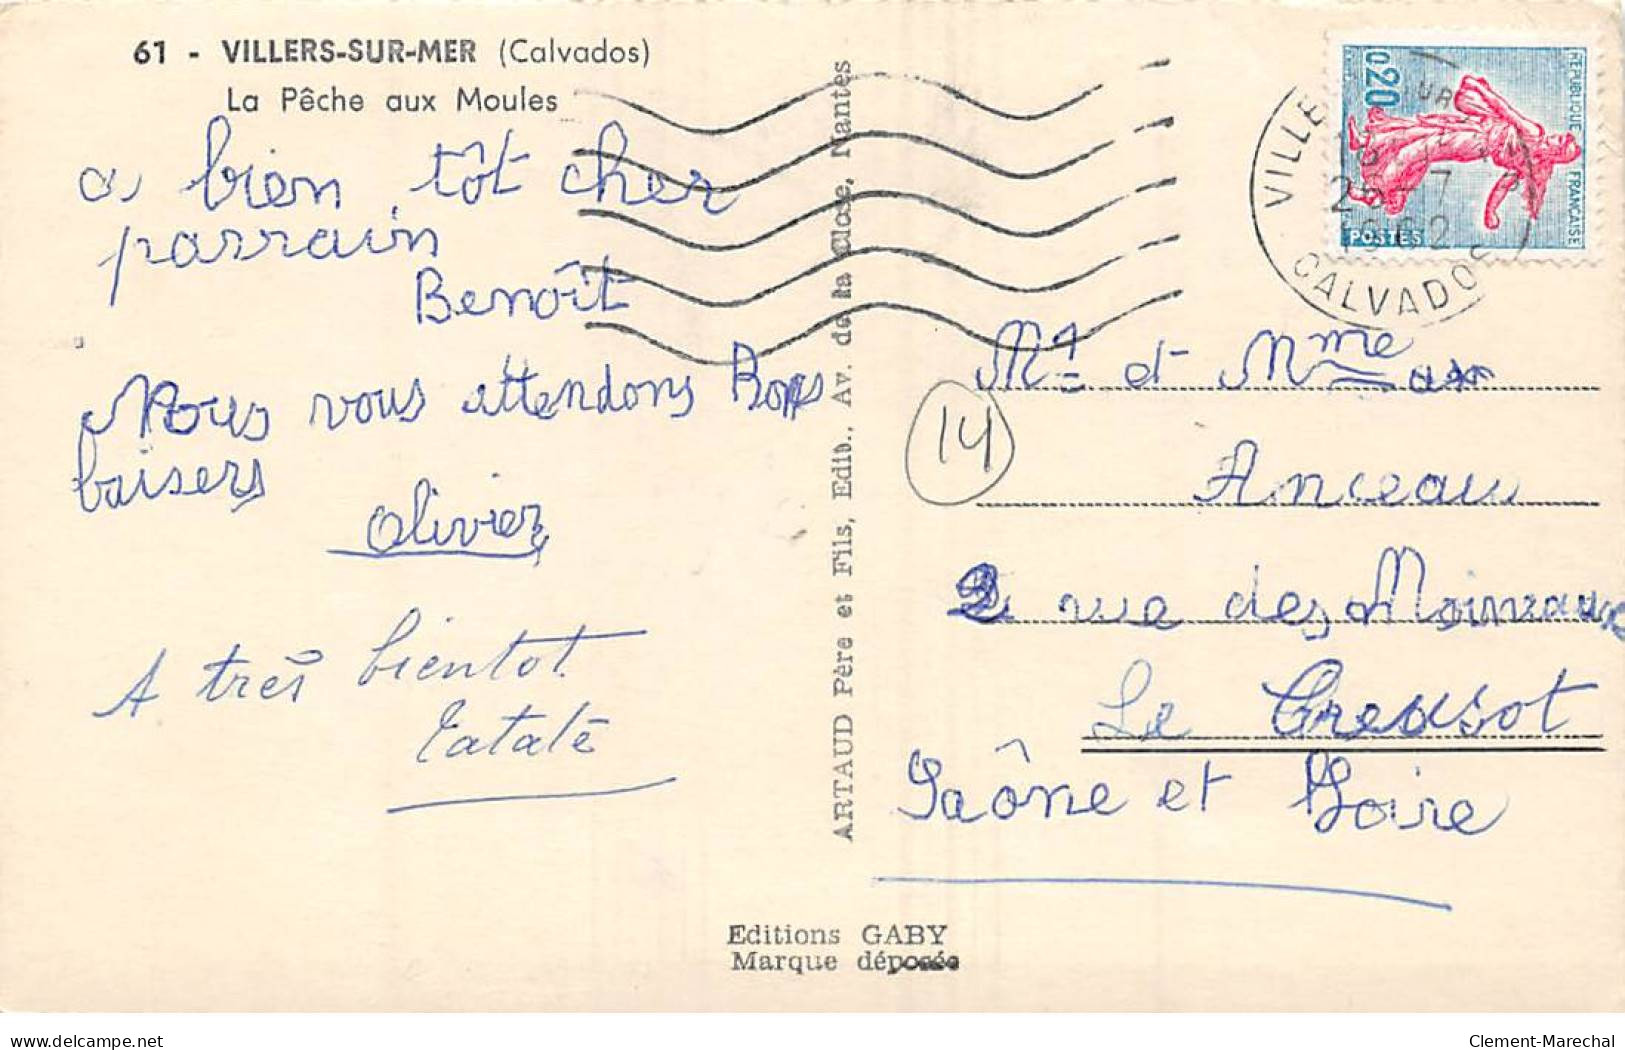 61 - VILLERS-SUR-MER (Calvados)
La Pêche aux Moules
a bien tôt cher
parrain
Benoît
Nous vous attendons Bons
baisers
Olivier
A très bientot.
Tataté
ARTAUD Père et Fils, Edit., Av. de la Close, Nantes
Editions GABY
Marque déposée
0,20
REPUBLIQUE FRANCAISE
POSTES
VILLERS SUR MER
25 - 7
1962
CALVADOS
14
Mr et Mme
Anceau
2 rue des Moineaux
Le Creusot
Saône et Loire
delcampe.net
Clement-Marechal